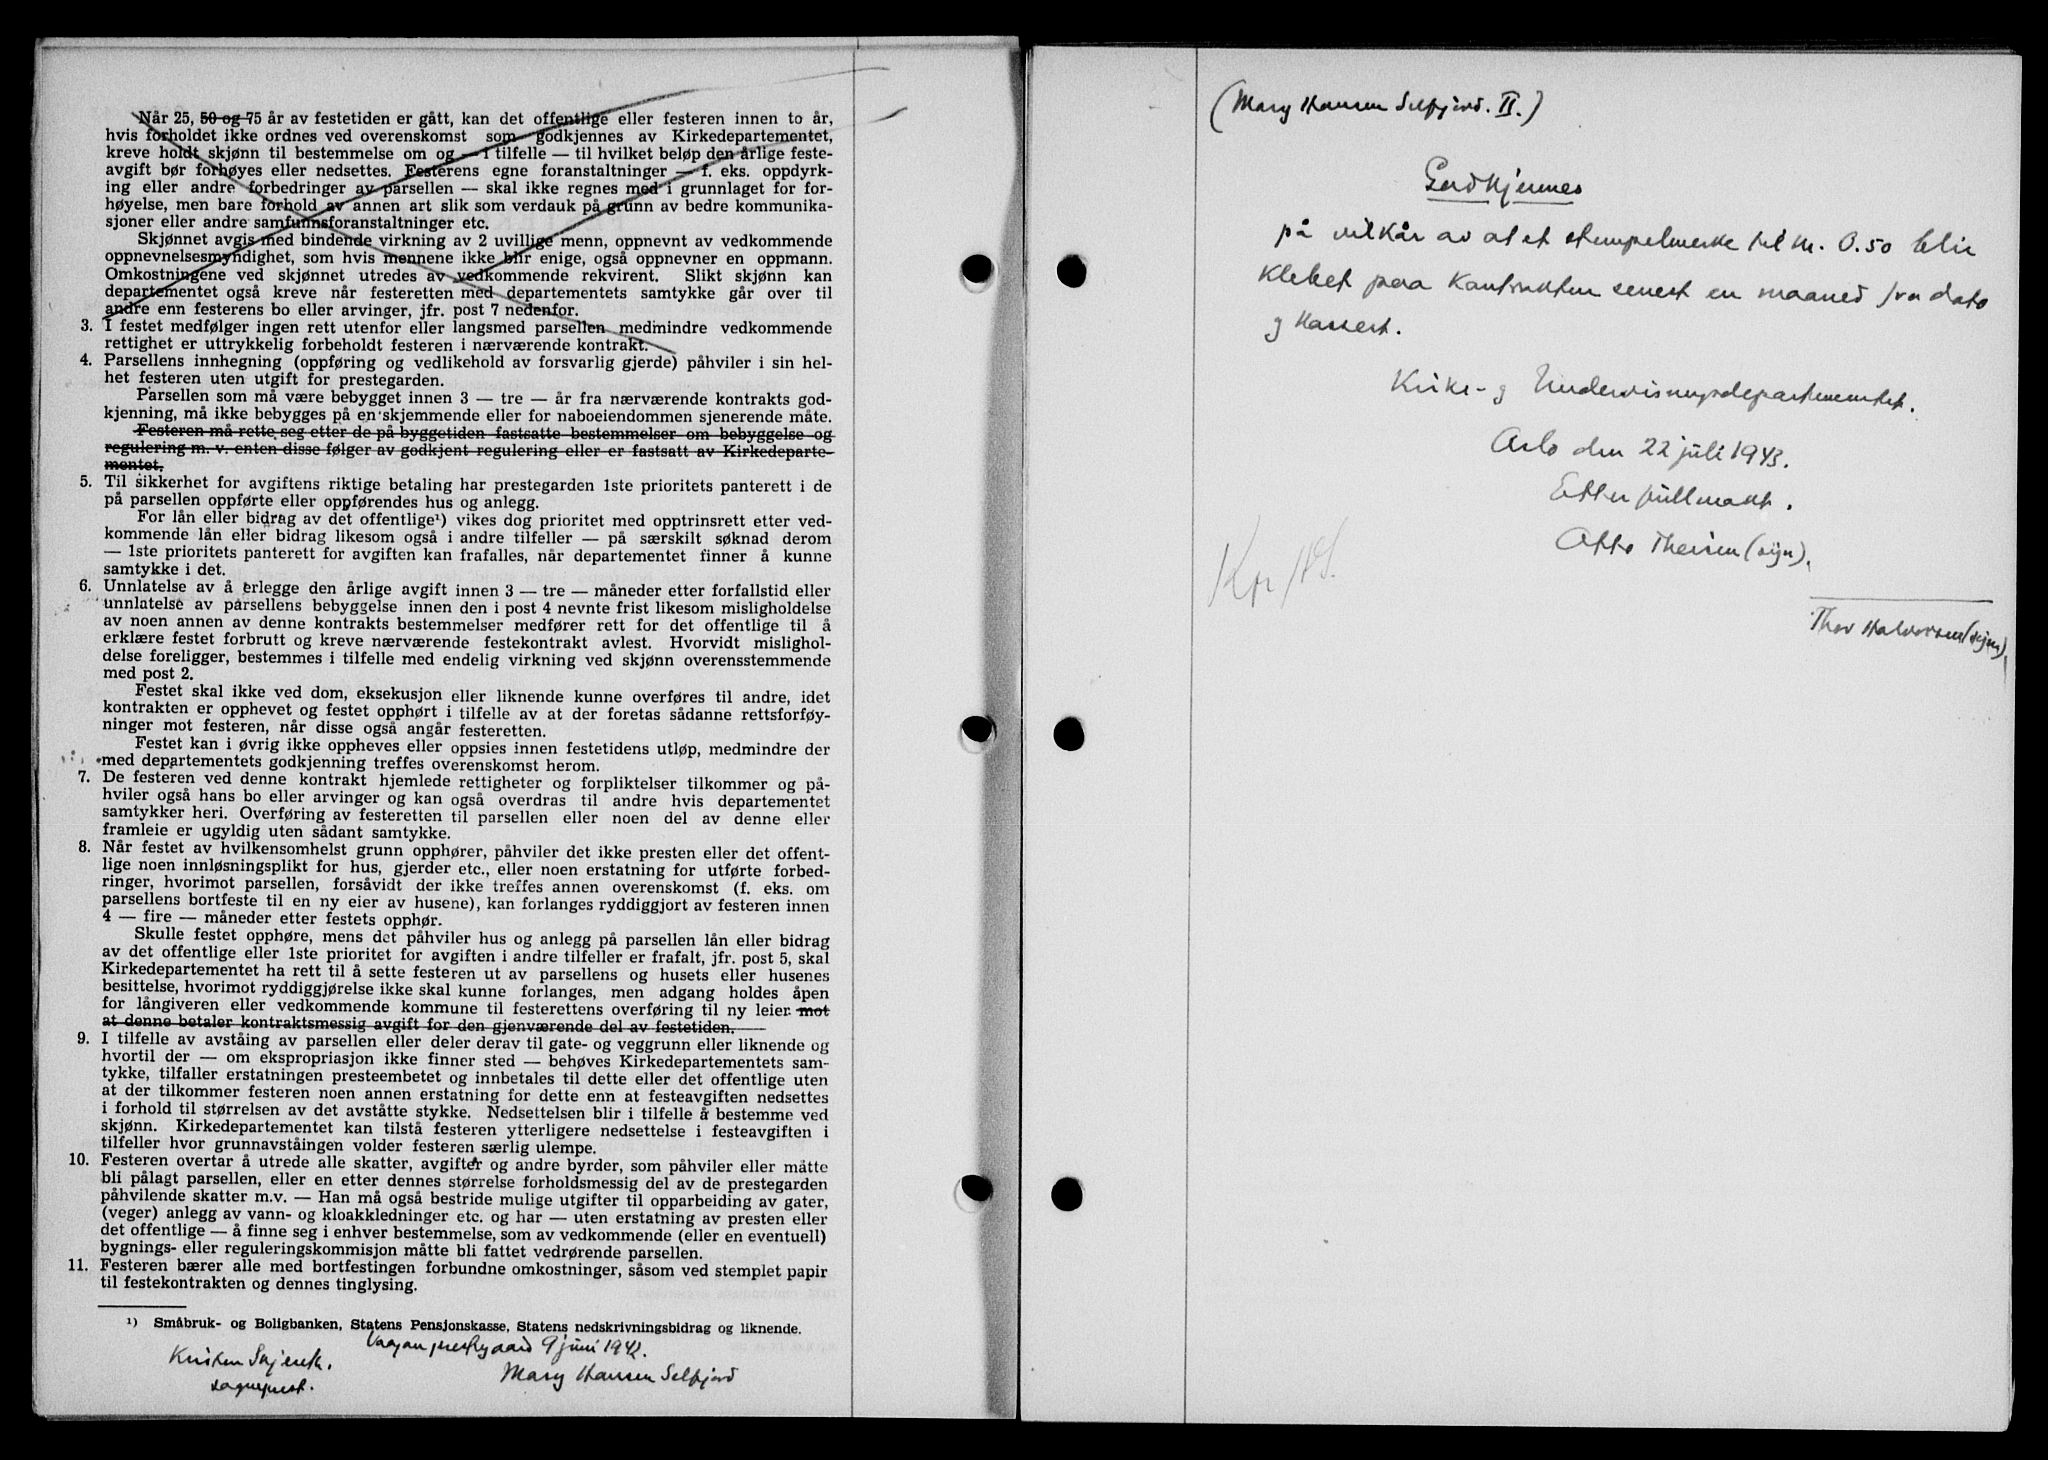 Når 25, 50 og 75 år av festetiden er gått, kan det offentlige eller festeren innen to år,
hvis forholdet ikke ordnes ved overenskomst som godkjennes av Kirkedepartementet,
kreve holdt skjønn til bestemmelse om og — i tilfelle — til hvilket beløp den årlige feste-
avgift bør forhøyes eller nedsettes. Festerens egne foranstaltninger — f. eks. oppdyrk-
ing eller andre forbedringer av parsellen — skal ikke regnes med i grunnlaget for for-
høyelse, men bare forhold av annen art slik som verdauk på grunn av bedre kommunika-
sjoner eller andre samfunnsforanstaltninger etc.
Skjønnet avgis med bindende virkning av 2 uvillige menn, oppnevnt av vedkommende
oppnevnelsesmyndighet, som hvis mennene ikke blir enige, også oppnevner en oppmann.
Omkostningene ved skjønnet utredes av vedkommende rekvirent. Slikt skjønn kan
departementet også kreve når festeretten med departementets samtykke går over til
andre enn festerens bo eller arvinger, jfr. post 7 nedenfor.
3. I festet medfølger ingen rett utenfor eller langsmed parsellen medmindre vedkommende
rettighet er uttrykkelig forbeholdt festeren i nærværende kontrakt.
4. Parsellens innhegning (oppføring og vedlikehold av forsvarlig gjerde) påhviler i sin hel-
het festeren uten utgift for prestegarden.
Parsellen som må være bebygget innen 3 — tre — år fra nærværende kontrakts god-
kjenning, må ikke bebygges på en skjemmende eller for naboeiendommen sjenerende måte.
Festeren må rette seg etter de på byggetiden fastsatte bestemmelser om bebyggelse og
regulering m. v. enten disse følger av godkjent regulering eller er fastsatt av Kirkedeparte-
mentet.
5. Til sikkerhet for avgiftens riktige betaling har prestegarden 1ste prioritets panterett i de
på parsellen oppførte eller oppførendes hus og anlegg.
For lån eller bidrag av det offentlige¹) vikes dog prioritet med opptrinsrett etter ved-
kommende lån eller bidrag likesom også i andre tilfeller — på særskilt søknad derom
— 1ste prioritets panterett for avgiften kan frafalles, når departementet finner å kunne
samtykke i det.
6. Unnlatelse av å erlegge den årlige avgift innen 3 — tre — måneder etter forfallstid eller
unnlatelse av parsellens bebyggelse innen den i post 4 nevnte frist likesom misligholdelse
av noen annen av denne kontrakts bestemmelser medfører rett for det offentlige til å
erklære festet forbrutt og kreve nærværende festekontrakt avlest. Hvorvidt mislighol-
delse foreligger, bestemmes i tilfelle med endelig virkning ved skjønn overensstemmende
med post 2.
Festet skal ikke ved dom, eksekusjon eller liknende kunne overføres til andre, idet
kontrakten er opphevet og festet opphørt i tilfelle av at der foretas sådanne rettsforføy-
ninger mot festeren, når disse også angår festeretten.
Festet kan i øvrig ikke oppheves eller oppsies innen festetidens utløp, medmindre der
med departementets godkjenning treffes overenskomst herom.
7. De festeren ved denne kontrakt hjemlede rettigheter og forpliktelser tilkommer og på-
hviler også hans bo eller arvinger og kan også overdras til andre hvis departementet
samtykker heri. Overføring av festeretten til parsellen eller noen del av denne eller
framleie er ugyldig uten sådant samtykke.
8. Når festet av hvilkensomhelst grunn opphører, påhviler det ikke presten eller det offent-
lige noen innløsningsplikt for hus, gjerder etc., eller noen erstatning for utførte forbed-
ringer, hvorimot parsellen, forsåvidt der ikke treffes annen overenskomst (f. eks. om
parsellens bortfeste til en ny eier av husene), kan forlanges ryddiggjort av festeren innen
4 — fire — måneder etter festets opphør.
Skulle festet opphøre, mens det påhviler hus og anlegg på parsellen lån eller bidrag
av det offentlige eller 1ste prioritet for avgiften i andre tilfeller er frafalt, jfr. post 5, skal
Kirkedepartementet ha rett til å sette festeren ut av parsellens og husets eller husenes
besittelse, hvorimot ryddiggjørelse ikke skal kunne forlanges, men adgang holdes åpen
for långiveren eller vedkommende kommune til festerettens overføring til ny leier mot
at denne betaler kontraktsmessig avgift for den gjenværende del av festetiden.
9. I tilfelle av avståing av parsellen eller deler derav til gate- og veggrunn eller liknende og
hvortil der — om ekspropriasjon ikke finner sted — behøves Kirkedepartementets sam-
tykke, tilfaller erstatningen presteembetet og innbetales til dette eller det offentlige uten
at der tilkommer festeren noen annen erstatning for dette enn at festeavgiften nedsettes
i forhold til størrelsen av det avståtte stykke. Nedsettelsen blir i tilfelle å bestemme ved
skjønn. Kirkedepartementet kan tilstå festeren ytterligere nedsettelse i festeavgiften i
tilfeller hvor grunnavståingen volder festeren særlig ulempe.
10. Festeren overtar å utrede alle skatter, avgifter og andre byrder, som påhviler eller måtte
bli pålagt parsellen, eller en etter dennes størrelse forholdsmessig del av de prestegarden
påhvilende skatter m.v. — Han må også bestride mulige utgifter til opparbeiding av gater,
(veger) anlegg av vann- og kloakkledninger etc. og har — uten erstatning av presten eller
det offentlige — å finne seg i enhver bestemmelse, som av vedkommende (eller en eventuell)
bygnings- eller reguleringskommisjon måtte bli fattet vedrørende parsellen.
11. Festeren bærer alle med bortfestingen forbundne omkostninger, såsom ved stemplet papir
til festekontrakten og dennes tinglysing.
¹) Småbruk- og Boligbanken, Statens Pensjonskasse, Statens nedskrivningsbidrag og liknende.
Vaagan prestegaard 9 juni 1942.
Kristen Skjerulk.
sogneprest.
Mary Hansen Selfjord
(Mary Hansen Selfjord. II.)
Godkjennes
på vilkår av at et stempelmerke til kr. 0.50 blir
klebet paa kontrakten senest en maaned fra dato
og kassert.
Kirke- og Undervisningsdepartementet.
Oslo den 22 juli 1943.
Etter fullmakt.
Otto Theisen (sign).
Thor Halvorsen (sign).